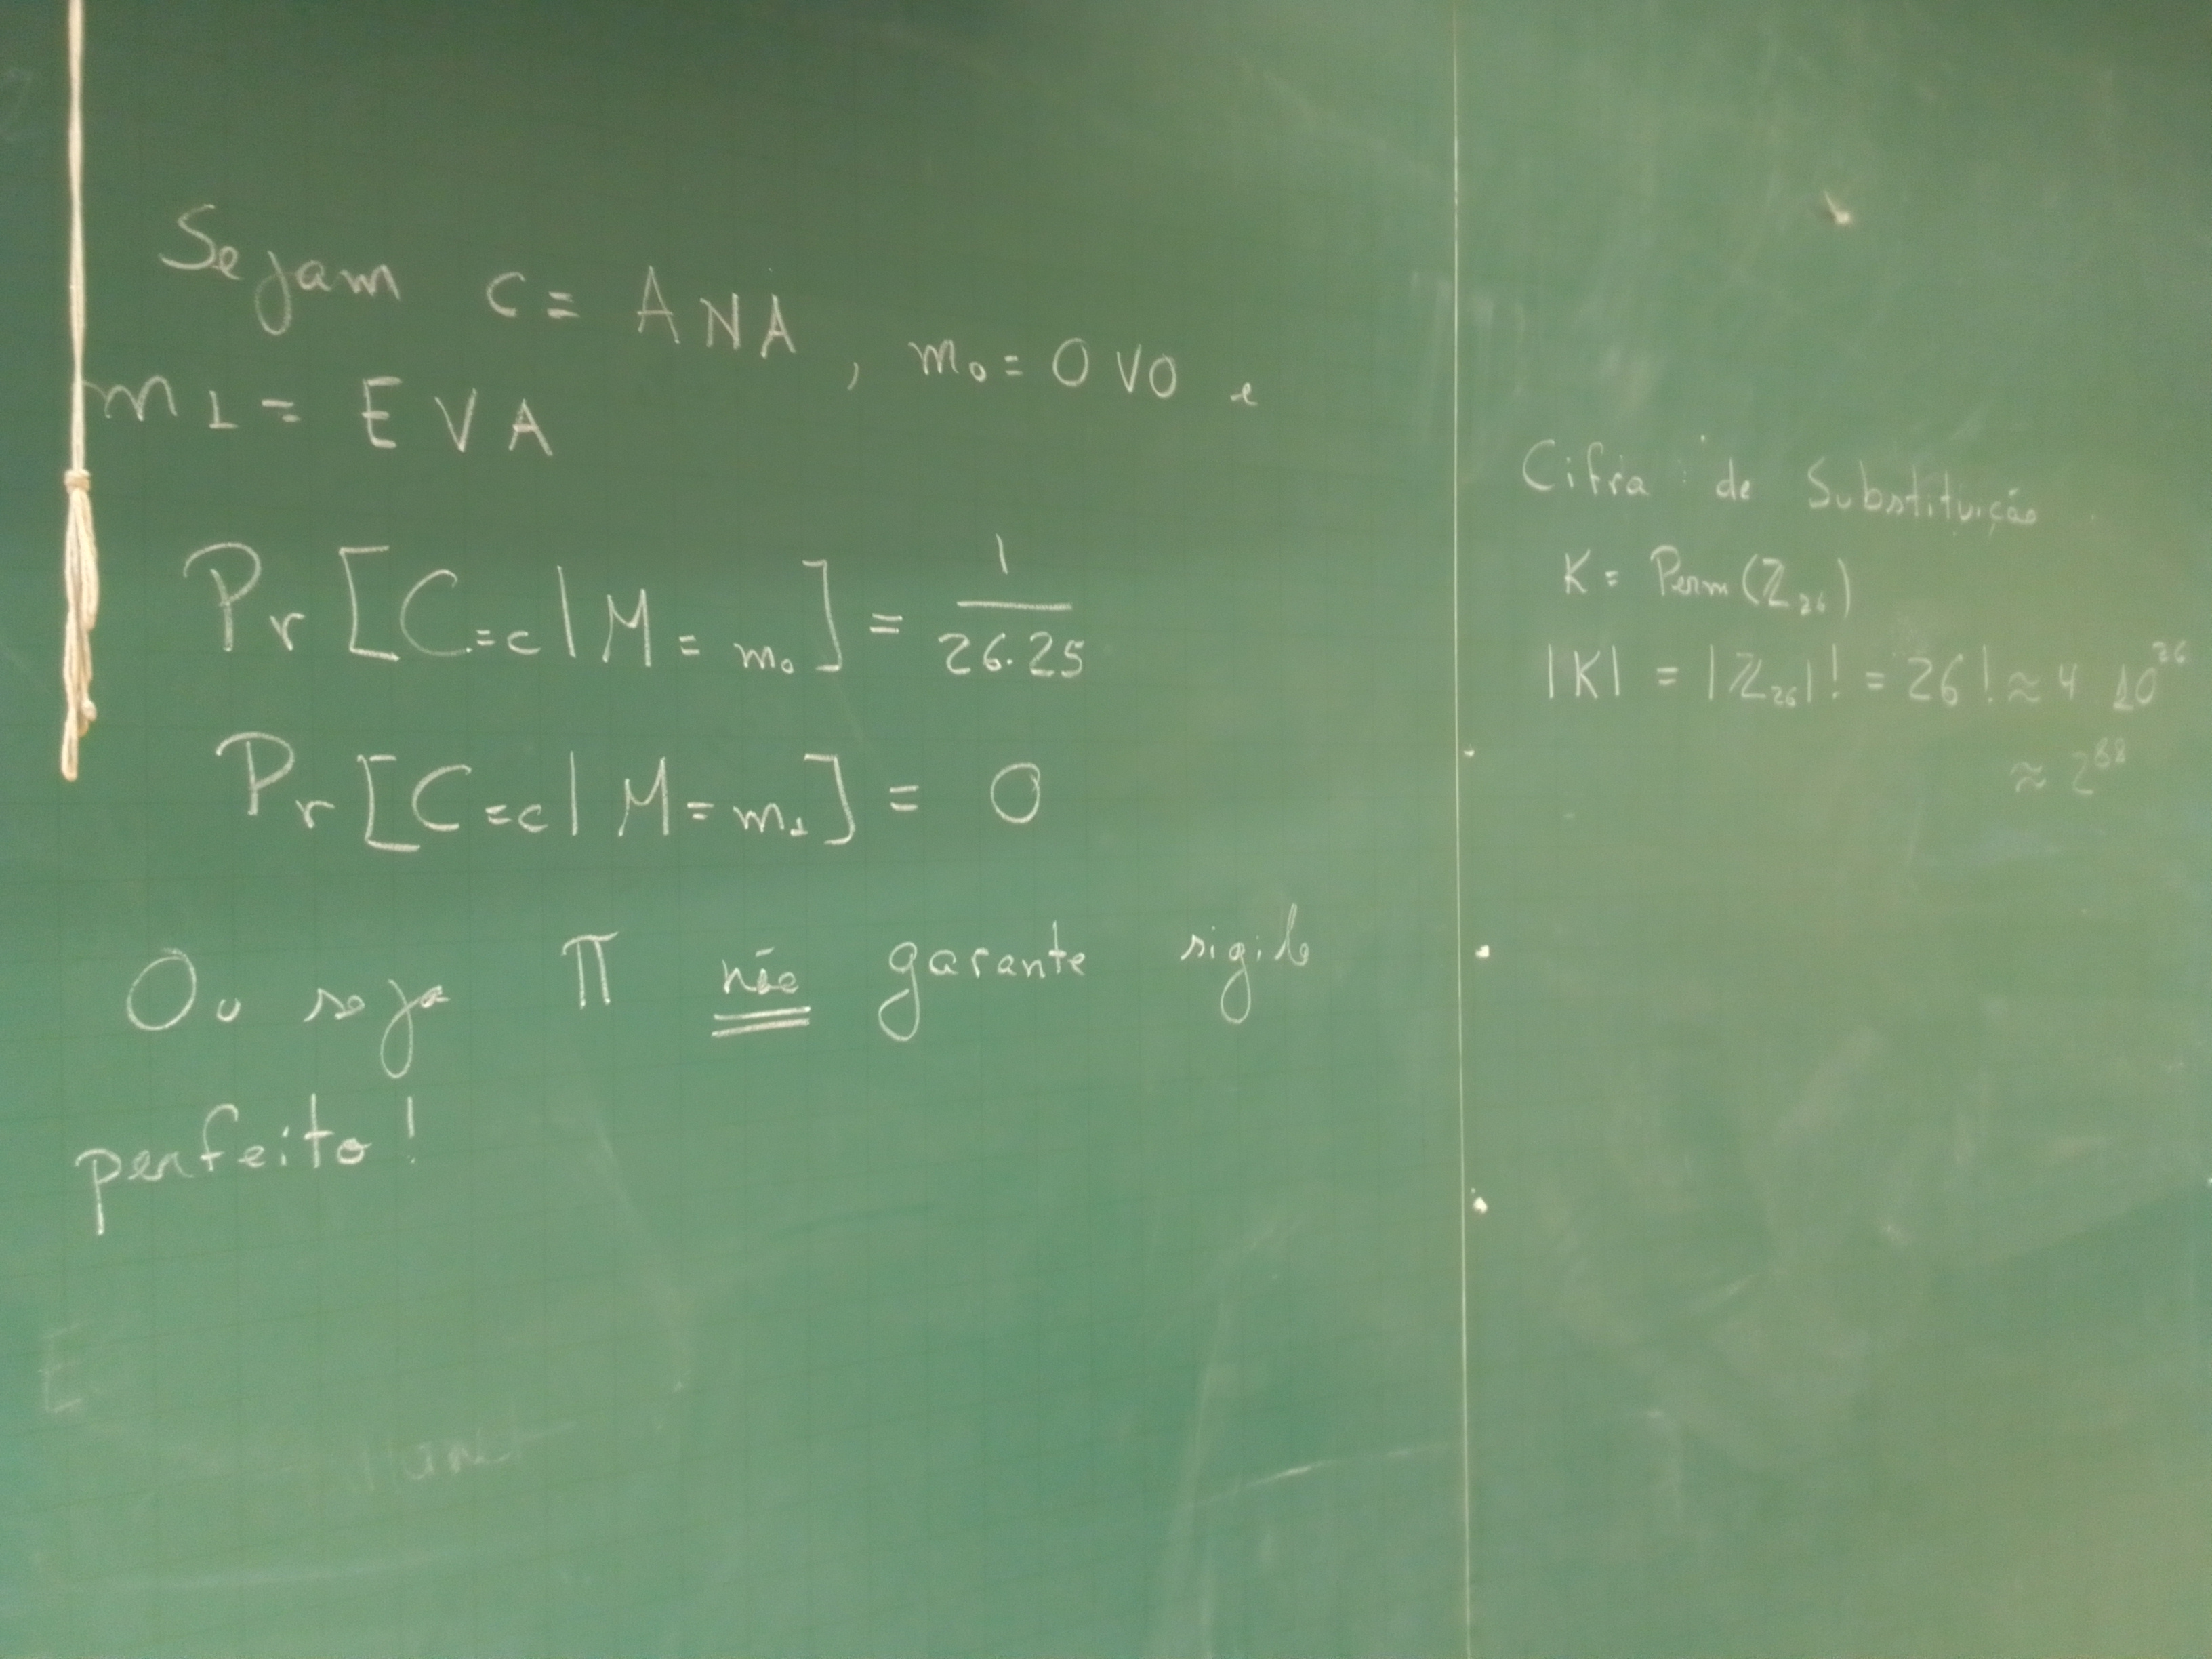 Sejam c = ANA, m₀ = OVO e
m₁ = EVA
Pr[C=c | M = m₀] = 1/26.25
Pr[C=c | M = m₁] = 0
Ou seja Π não garante sigilo
perfeito!
Cifra de Substituição
K = Perm(ℤ₂₆)
|K| = |ℤ₂₆|! = 26! ≈ 4 10²⁶
≈ 2⁸⁸